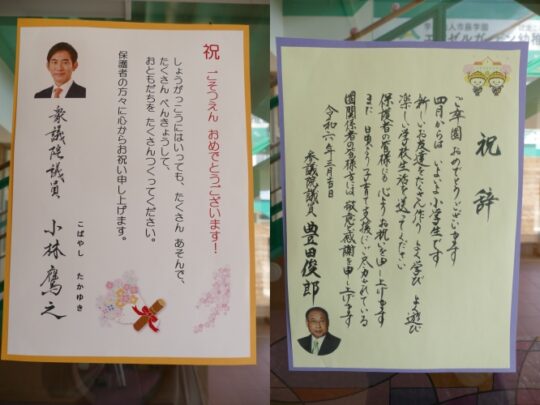 祝
ごそつえん おめでとうございます!
しょうがっこうにはいっても、たくさん あそんで、
たくさん べんきょうして、
おともだちを たくさんつくってください。
保護者の方々に心からお祝い申し上げます。
衆議院議員 小林鷹之
こばやし たかゆき
祝辞
ご卒園おめでとうございます
四月からは いよいよ小学生です
新しいお友達をたくさん作り よく学び よく遊び
楽しい学校生活を送ってください
保護者の皆様にも 心よりお祝いを申し上げます
また 日頃より子育て支援にご尽力されている
園関係者の皆様方には 敬意と感謝を申し上げます
令和六年三月吉日
参議院議員 豊田俊郎